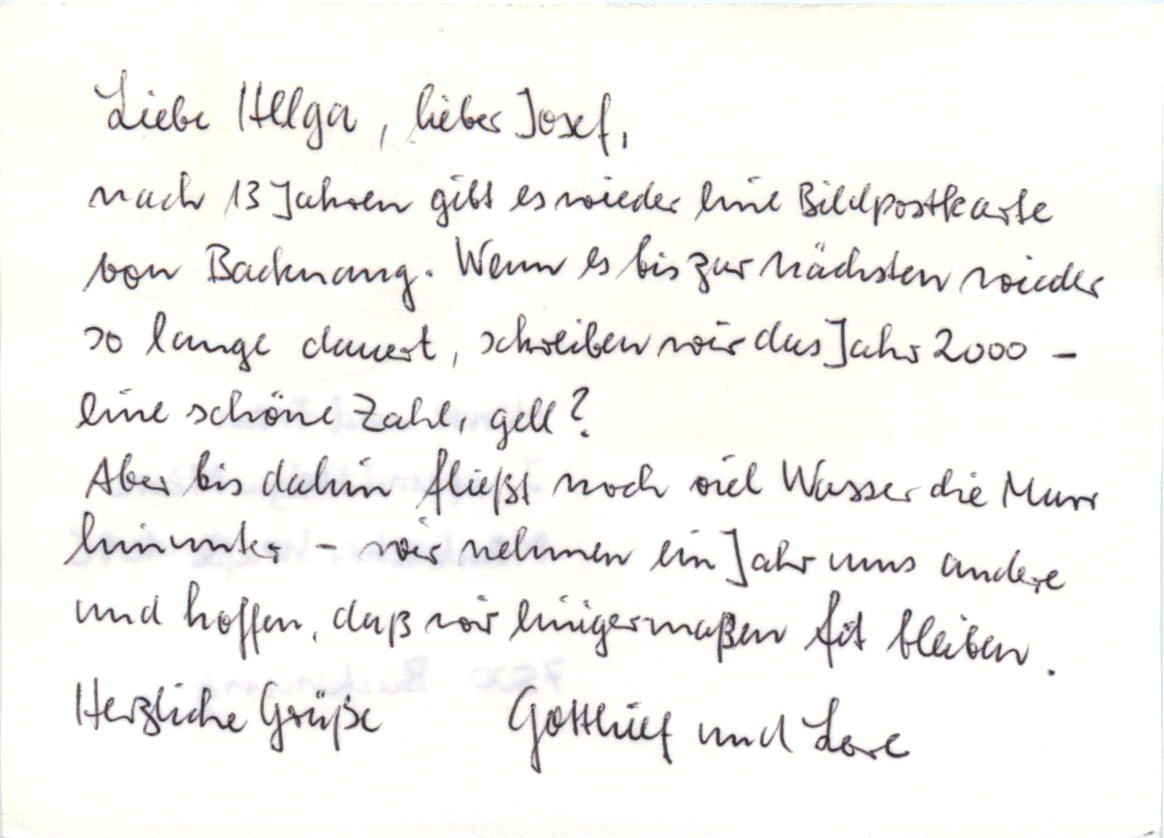 Liebe Helga, lieber Josef,
nach 13 Jahren gibt es wieder eine Bildpostkarte
von Backnang. Wenn es bis zur nächsten wieder
so lange dauert, schreiben wir das Jahr 2000 –
eine schöne Zahl, gell?
Aber bis dahin fließt noch viel Wasser die Murr
hinunter – wir nehmen ein Jahr ums andere
und hoffen, daß wir einigermaßen fit bleiben.
Herzliche Grüße Gotthilf und Lore